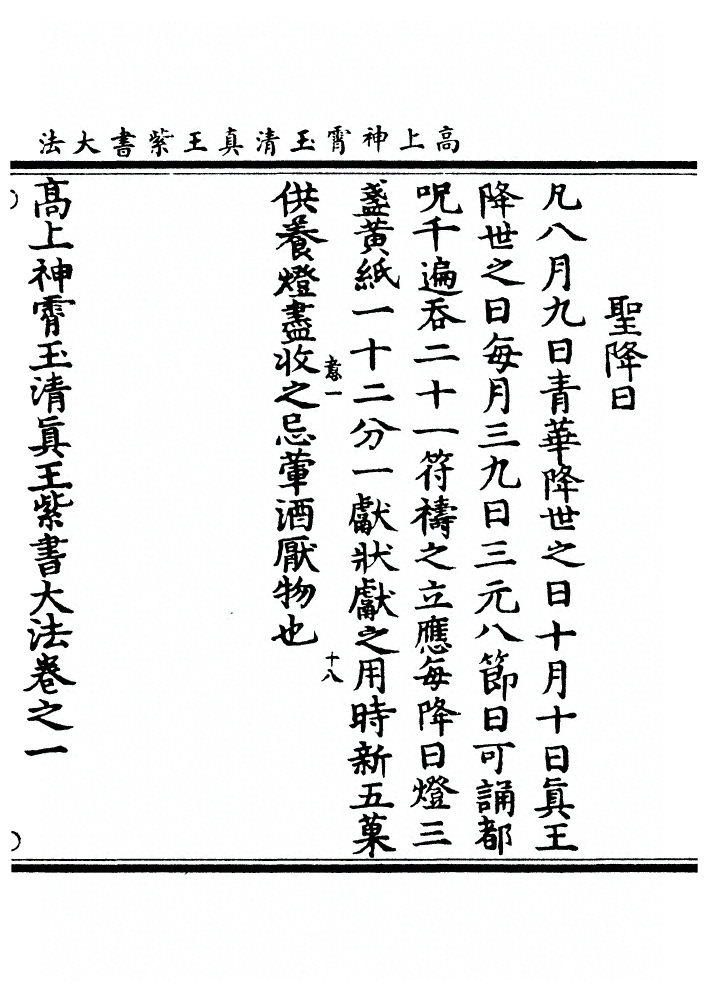 高上神霄玉清真王紫書大法
聖降日
凡八月九日青華降世之日十月十日眞王
降世之日每月三九日三元八節日可誦都
呪千遍吞二十一符禱之立應每降日燈三
盞黃紙一十二分一獻狀獻之用時新五菓
十八
供養燈盡收之忌葷酒厭物也
高上神霄玉清眞王紫書大法卷之一